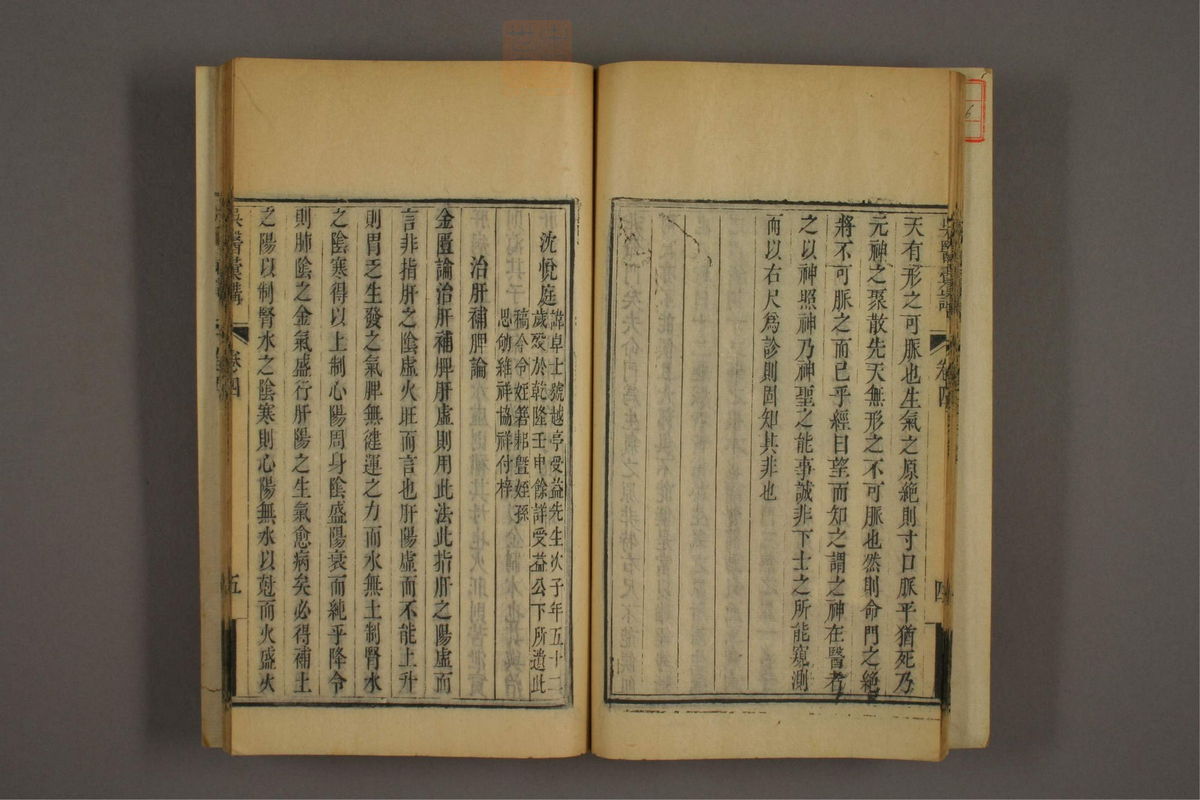 天有形之可脈也生氣之原絶則寸口脈平猶死乃
元神之聚散先天無形之不可脈也然則命門之絶
將不可脈之而已乎經曰望而知之謂之神在醫者
之以神照神乃神聖之能事誠非下士之所能窺測
而以右尺爲診則固知其非也
卷四
沈悅庭
諱卓士號越亭受益先生次子年五十二
歲歿於乾隆壬申餘詳受益公下所遺此
稿今令姪箬邨曁姪孫
思劬維祥協祥付梓
治肝補脾論
金匱論治肝補脾肝虛則用此法此指肝之陽虛而
言非指肝之陰虛火旺而言也肝陽虛而不能上升
則胃乏生發之氣脾無健運之力而水無土制腎水
之陰寒得以上制心陽周身陰盛陽衰而純乎降令
則肺陰之金氣盛行肝陽之生氣愈病矣必得補土
之陽以制腎水之陰寒則心陽無水以尅而火盛火
吳醫彙講
卷四
五